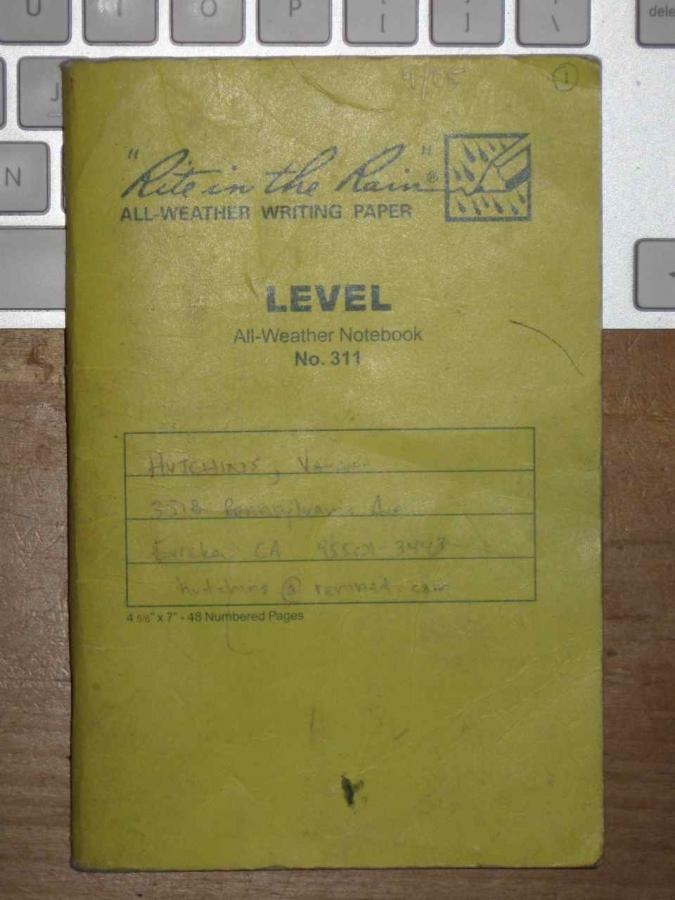 U I O P { [ } ] | \ dele
J
N
4/05 1
"Rite in the Rain"®
ALL-WEATHER WRITING PAPER
LEVEL
All-Weather Notebook
No. 311
HUTCHINS,
3518 Pennsylvania Ave
Eureka CA 95501-3443
hutchins @
4 5/8" x 7" - 48 Numbered Pages